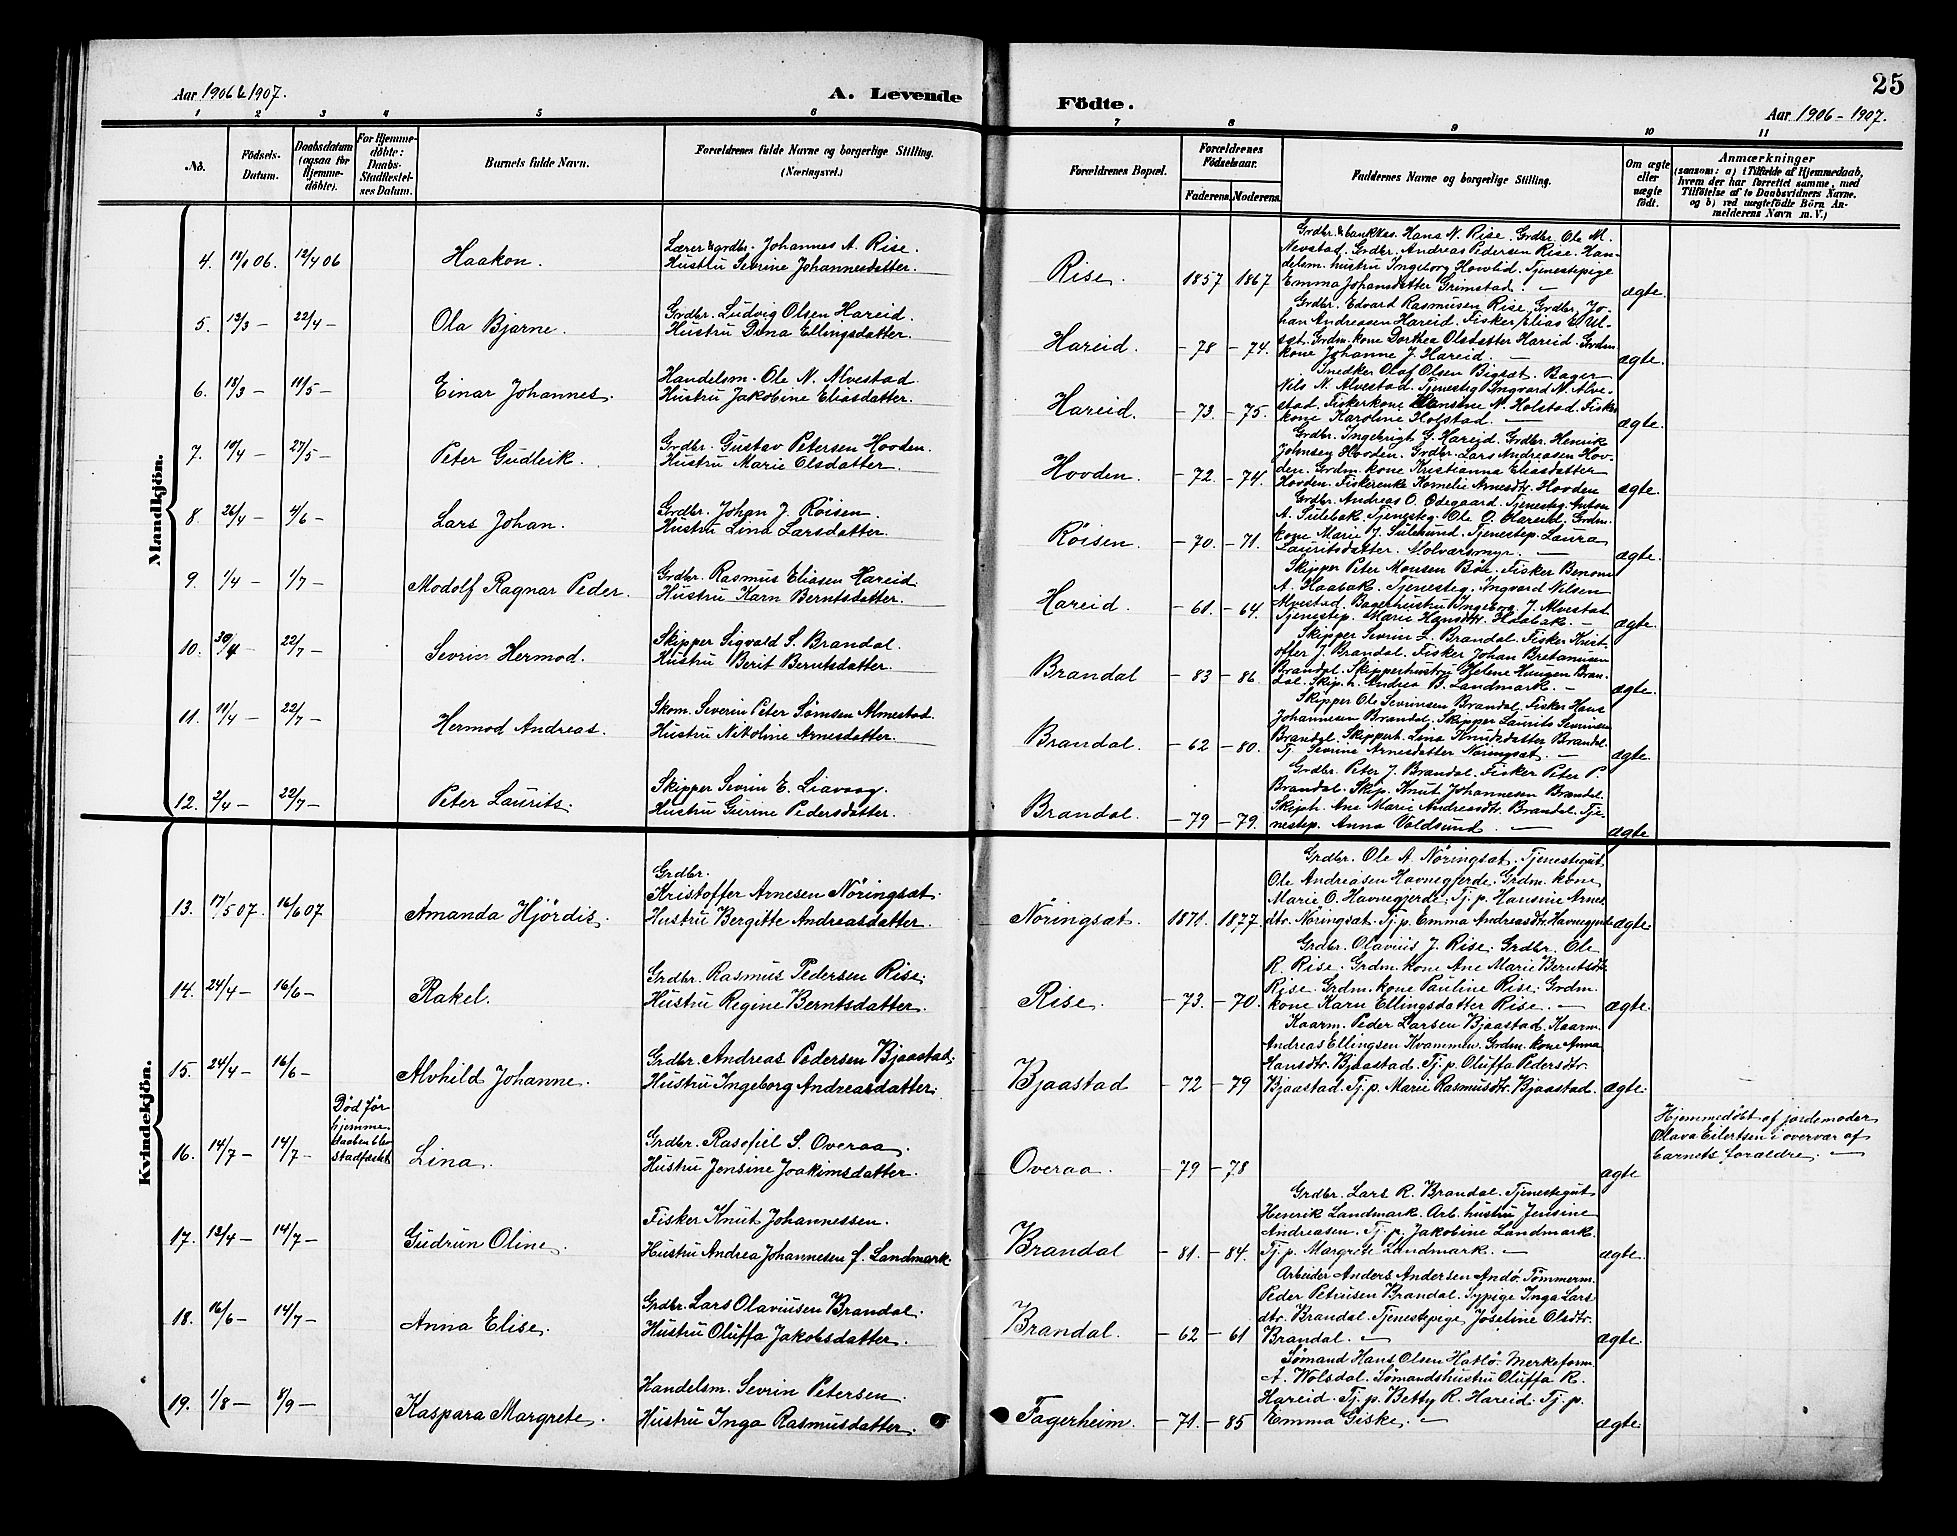 25
Aar 1906 & 1907.
A. Levende
Födte.
Aar 1906-1907.
1 2 3 4 5 6 7 8 9 10 11
No.
Födsels-
Datum.
Daabsdatum
(ogsaa for
Hjemme-
döbte).
For Hjemme-
döbte:
Daabs-
Stadfæstel-
ses Datum.
Barnets fulde Navn.
Forældrenes fulde Navne og borgerlige Stilling.
(Næringsvei.)
Forældrenes Bopæl.
Forældrenes
Födselsaar.
Faderens. Moderens.
Faddernes Navne og borgerlige Stilling.
Om ægte
eller
uægte
födt.
Anmærkninger
(saasom: a) i Tilfælde af Hjemmedaab,
hvem der har forrettet samme, med
Tilföielse af to Daabsvidners Navne.
og b) ved uægtefödte Börn An-
melderens Navn m. V.)
Mandkjön.
4. 11/1 06. 12/4 06 Haakon.
Lærer & grdbr. Johannes A. Rise.
Hustru Sevrine Johannesdatter.
Rise. 1857 1867
Grdbr. & bankkas. Hans N. Rise. Grdbr. Ole M.
Nevstad. Grdbr. Andreas Pedersen Rise. Han-
delsm. hustru Ingeborg Hovlid. Tjenestepige
Emma Johansdatter Grimstad. —
ægte.
5. 12/3 — 22/4 — Ola Bjarne.
Grdbr. Ludvig Olsen Hareid.
Hustru Dina Ellingsdatter.
Hareid. — 78 — 74.
Grdbr. Edvard Rasmusen Rise. Grdbr. Jo-
han Andreasen Hareid. Fisker Elias E. Ul-
set. Grdm. kone Dorthea Olsdatter Hareid. Grdm.
kone Johanne J. Hareid. —
ægte.
6. 18/3 — 11/5 — Einar Johannes.
Handelsm. Ole N. Alvestad.
Hustru Jakobine Eliasdatter.
Hareid. — 73. — 75.
Snedker Olaf Olsen Bigset. Bager
Nils N. Alvestad. Tjenesteg. Ingvard N. Alve-
stad. Fiskerkone Hansine N. Holstad. Fisker
kone Karoline Holstad. —
ægte.
7. 10/4 — 27/5 — Peter Gudleik.
Grdbr. Gustav Petersen Hovden.
Hustru Marie Olsdatter.
Hovden. — 72. — 74.
Grdbr. Ingebrigt G. Hareid. Grdbr. Henrik
Johnsen Hovden. Grdbr. Lars Andreasen Hov-
den. Grdm. kone Kristianna Eliasdatter
Hovden. Fiskerenke Kornelie Arnesdtr. Hovden
ægte.
8. 26/4 — 4/6 — Lars Johan.
Grdbr. Johan J. Röisen.
Hustru Lina Larsdatter.
Röisen. — 70. — 71.
Grdbr. Andreas O. Ödegaard. Tjenesteg. Anton
A. Sulebak. Tjenesteg. Ole O. Hareid. Grdm.
kone Marie J. Sulesund. Tjenestep. Laura
Lauritsdatter. Molværsmyr. —
ægte.
9. 1/4 — 1/7 — Modolf Ragnar Peder.
Grdbr. Rasmus Eliasen Hareid.
Hustru Karn Berntsdatter.
Hareid. — 61. — 64.
Skipper Peter Monsen Böe. Fisker Benoni
A. Haabak. Tjenesteg. Ingvard Nilsen
Alvestad. Bagerhustru Ingeborg J. Alvestad.
Tjenestep. Marie Hansdtr. Haabak. —
ægte.
10. 30/4 — 22/7 — Sevrin Hermod.
Skipper Sigvald S. Brandal.
Hustru Berit Berntsdatter.
Brandal — 83 — 86.
Skipper Sevrin L. Brandal. Fisker Krist-
offer J. Brandal. Fisker Johan Bretanusen
Brandal. Skipperhustru Helene Haugen Bran-
dal. Skip. h. Andrea B. Landmark. —
ægte.
11. 11/4 — 22/7 — Hermod Andreas.
Skom. Severin Peter Sömsen Almestad.
Hustru Nikoline Arnesdatter.
Brandal. — 62 — 80.
Skipper Ole Sevrinsen Brandal. Fisker Hans
Johannesen Brandal. Skipper Laurits Sevrinsen
Brandal. Skippert. Lina Knutsdatter Brandal.
Tj. Sevrine Arnesdatter Nöringset. —
ægte.
12. 2/4 — 22/7 — Peter Laurits.
Skipper Sevrin E. Liavaag.
Hustru Gurine Pedersdatter.
Brandal. — 79 — 79.
Grdbr. Peter J. Brandal. Fisker Peter P.
Brandal. Skip. Knut Johannesen Brandal.
Skiph. Ane Marie Andreasdtr. Brandal. Tje-
nestep. Anna Voldsund. —
ægte
Kvindekjön.
13. 17/5 07. 16/6 07 Amanda Hjördis.
Grdbr.
Kristoffer Arnesen Nöringsæt.
Hustru Bergitte Andreasdatter.
Nöringsæt. 1871. 1877.
Grdbr. Ole A. Nöringsæt. Tjenestegut
Ole Andreasen Havnegjerde. Grdm. kone
Marie O. Havnegjerde. Tj. p. Hansine Arnes
dtr. Nöringsæt. Tj. p. Emma Andreasdtr. Havnegjerde
ægte.
14. 24/4 — 16/6 — Rakel.
Grdbr. Rasmus Pedersen Rise.
Hustru Regine Berntsdatter.
Rise. — 73. — 70.
Grdbr. Olavius J. Rise. Grdbr. Ole
R. Rise. Grdm. kone Ane Marie Berntsdtr.
Rise. Grdm. kone Pauline Rise. Grdm.
kone Karn Ellingsdatter Rise. —
ægte.
15. 24/4 — 16/6 — Alvhild Johanne.
Grdbr. Andreas Pedersen Bjaastad.
Hustru Ingeborg Andreasdatter.
Bjaastad — 72 — 79
Kaarm. Peder Larsen Bjaastad. Kaarm.
Andreas Ellingsen Kvammen. Grdm. kone Anna
Hansdtr. Bjaastad. Tj. p. Oluffa Pedersdtr.
Bjaastad. Tj. p. Marie Rasmusdtr. Bjaastad.
ægte.
16. 14/7 — 14/7 —
Död før
hjemme
daaben blev
stadfæstet.
Lina.
Grdbr. Rasefiel S. Overaa.
Hustru Jensine Joakimsdatter.
Overaa. — 79 — 78
ægte
Hjemmedøbt af jordemoder
Olava Eilertsen i overvær af
barnets forældre. —
17. 13/4 — 14/7 — Gudrun Oline.
Fisker Knut Johannessen.
Hustru Andrea Johannesen f. Landmark.
Brandal — 81. — 84.
Grdbr. Lars R. Brandal. Tjenestegut
Henrik Landmark. Arb. hustru Jensine
Andreasen. Tj. p. Jakobine Landmark.
Tj. p. Margrete Landmark. —
ægte.
18. 16/6 — 14/7 — Anna Elise.
Grdbr. Lars Olaviusen Brandal.
Hustru Oluffa Jakobsdatter.
Brandal. — 62 — 61
Arbeider Anders Andersen Andö. Tömmerm.
Peder Petrusen Brandal. Sypige Inga Lars
dtr. Brandal. Tjenestepige Josefine Olsdtr.
Brandal. —
ægte.
19. 1/8 — 8/9 — Kaspara Margrete.
Handelsm. Sevrin Petersen.
Hustru Inga Rasmusdatter.
Fagerheim. — 71. — 85
Sömand Hans Olsen Hatlö. Merkeform.
A. Wolsdal. Sömandshustru Oluffa R.
Hareid. Tj. p. Betty R. Hareid. Tj. p.
Emma Giske. —
ægte.